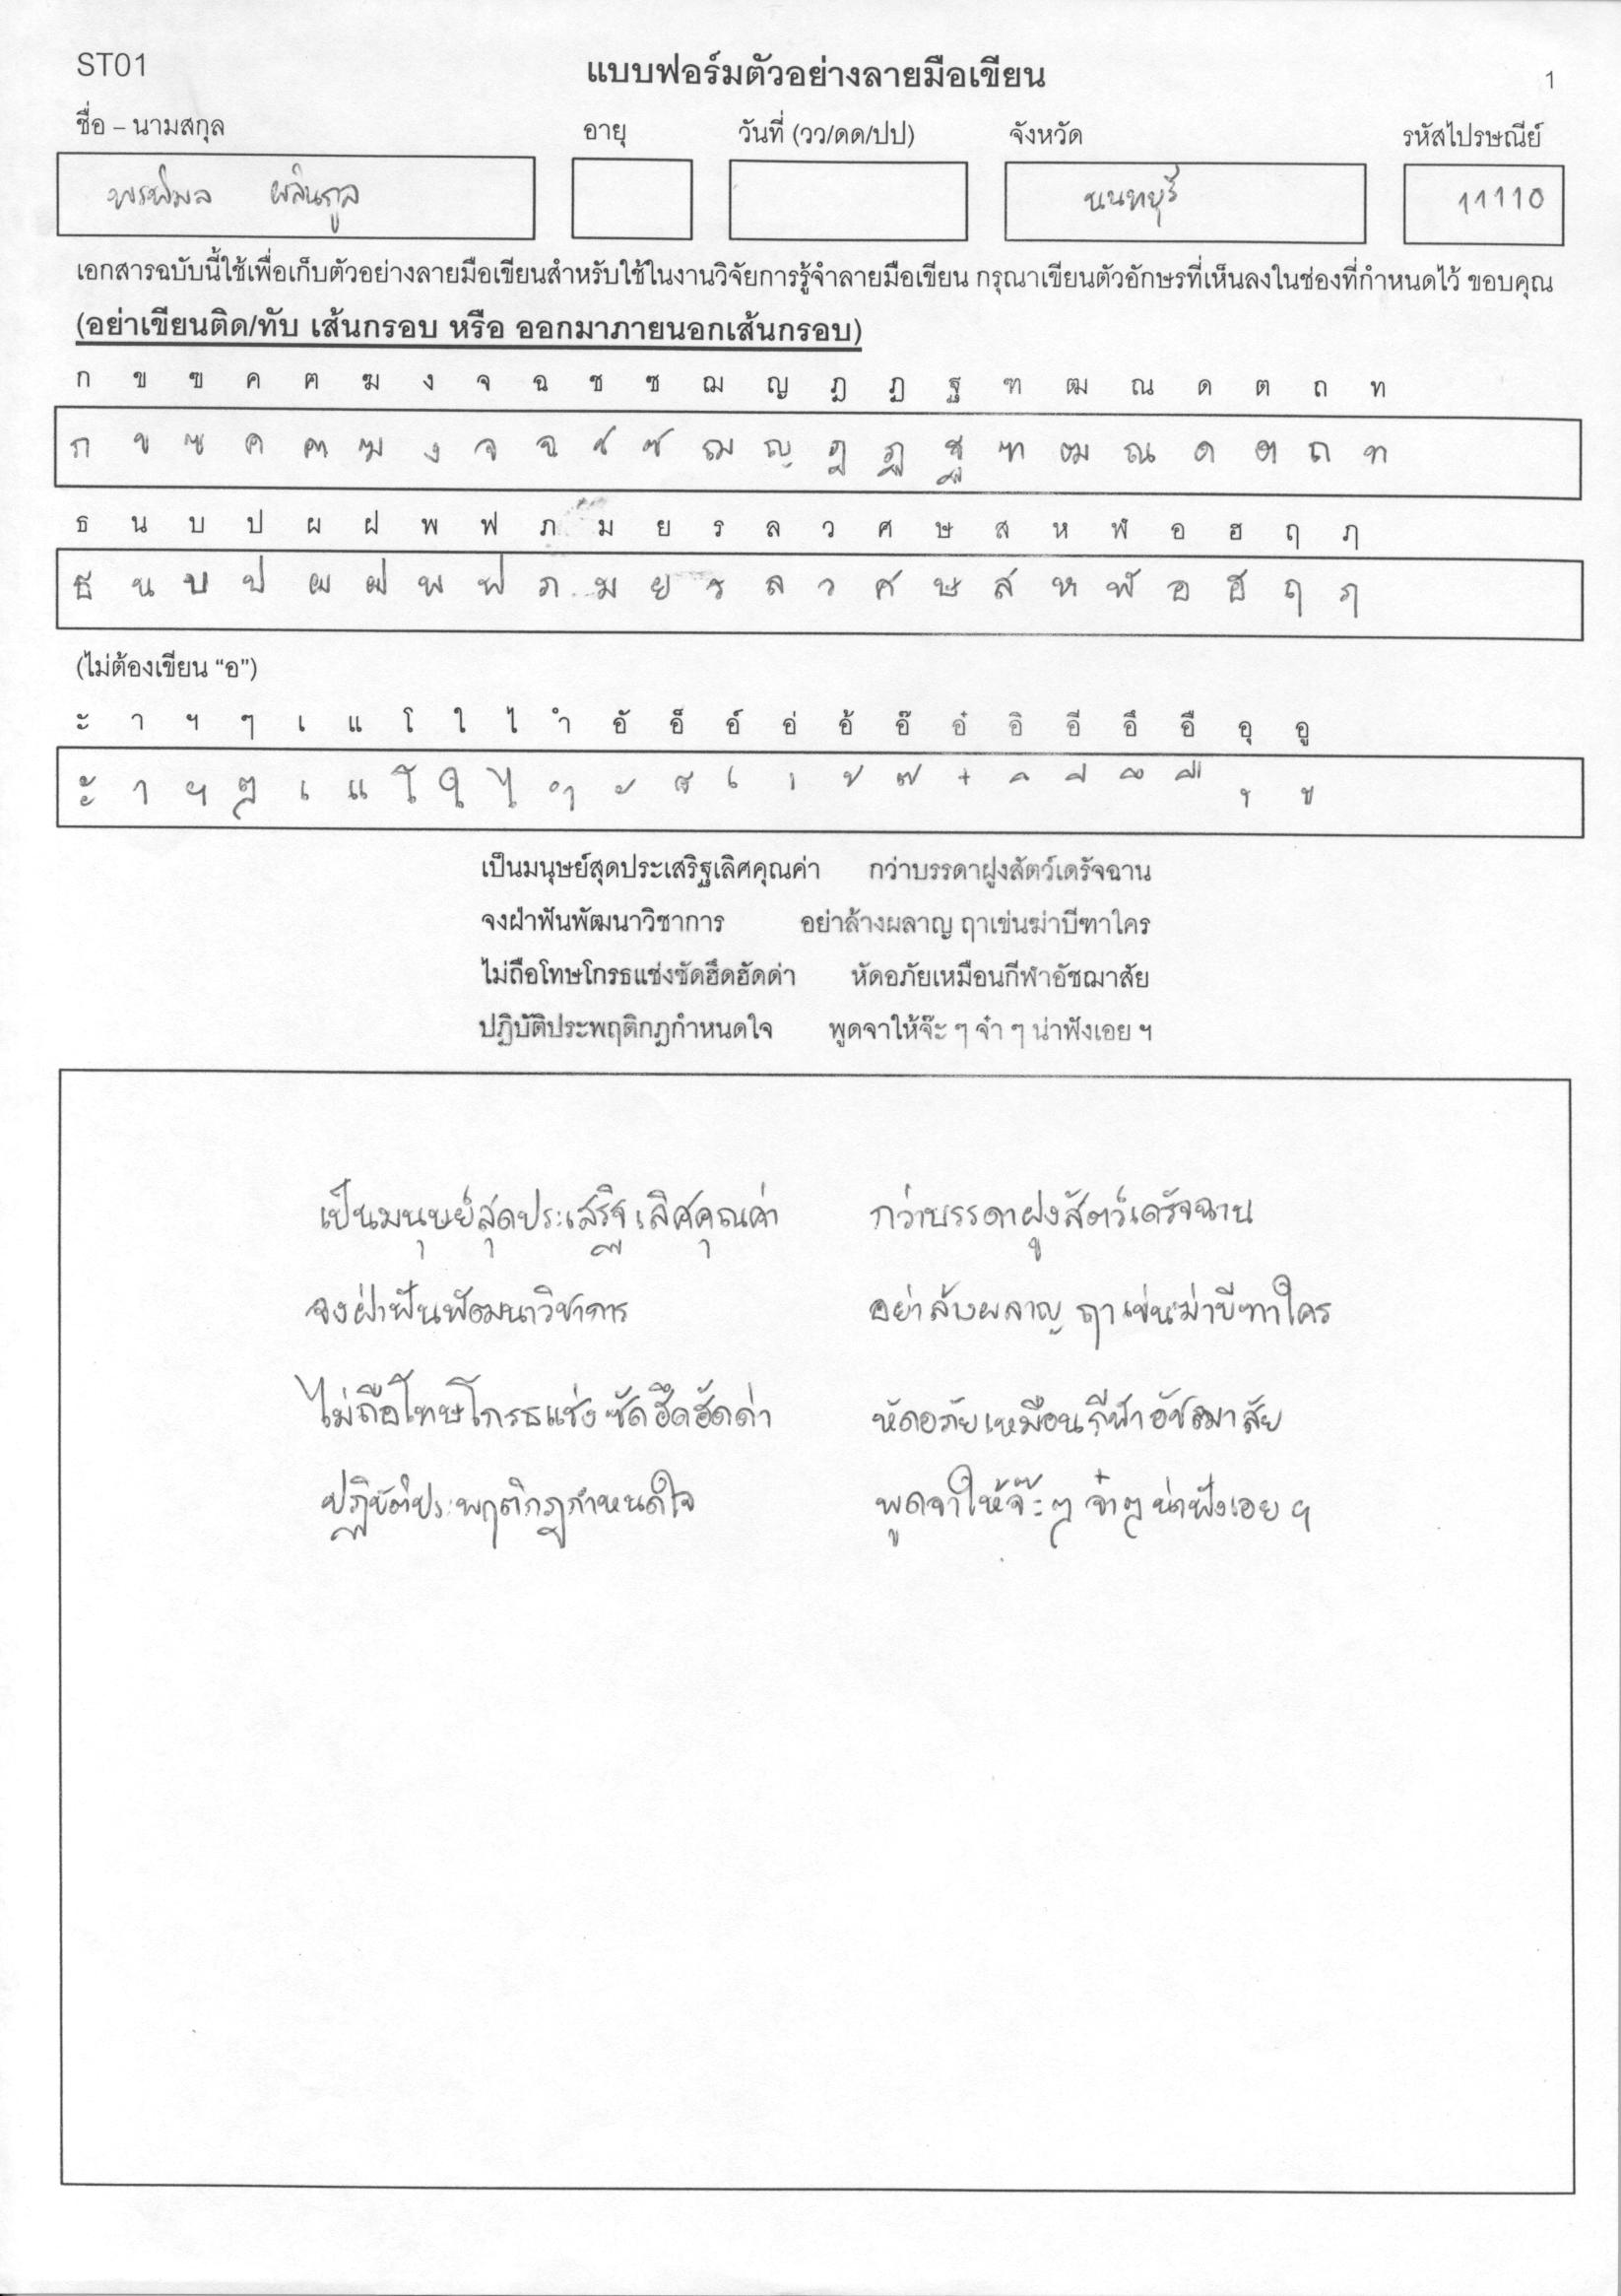 ST01 แบบฟอร์มตัวอย่างลายมือเขียน 1
ชื่อ – นามสกุล อายุ วันที่ (วว/ดด/ปป) จังหวัด รหัสไปรษณีย์
พรพิมล ผลินกูล นนทบุรี 11110
เอกสารฉบับนี้ใช้เพื่อเก็บตัวอย่างลายมือเขียนสำหรับใช้ในงานวิจัยการรู้จำลายมือเขียน กรุณาเขียนตัวอักษรที่เห็นลงในช่องที่กำหนดไว้ ขอบคุณ
(อย่าเขียนติด/ทับ เส้นกรอบ หรือ ออกมาภายนอกเส้นกรอบ)
ก ข ฃ ค ฅ ฆ ง จ ฉ ช ซ ฌ ญ ฎ ฏ ฐ ฑ ฒ ณ ด ต ถ ท
ก ข ฃ ค ฅ ฆ ง จ ฉ ช ซ ฌ ญ ฎ ฏ ฐ ฑ ฒ ณ ด ต ถ ท
ธ น บ ป ผ ฝ พ ฟ ภ ม ย ร ล ว ศ ษ ส ห ฬ อ ฮ ฤ ฦ
ธ น บ ป ผ ฝ พ ฟ ภ ม ย ร ล ว ศ ษ ส ห ฬ อ ฮ ฤ ฦ
(ไม่ต้องเขียน “อ”)
ะ า ฯ ๆ เ แ โ ใ ไ ำ อั อ็ อ์ อ่ อ้ อ๊ อ๋ อิ อี อึ อื อุ อู
ะ า ฯ ๆ เ แ โ ใ ไ ำ ั ็ ์ ่ ้ ๊ ๋ ิ ี ึ ื ุ ู
เป็นมนุษย์สุดประเสริฐเลิศคุณค่า กว่าบรรดาฝูงสัตว์เดรัจฉาน
จงฝ่าฟันพัฒนาวิชาการ อย่าล้างผลาญ ฤาเข่นฆ่าบีฑาใคร
ไม่ถือโทษโกรธแช่งซัดฮึดฮัดด่า หัดอภัยเหมือนกีฬาอัชฌาสัย
ปฏิบัติประพฤติกฎกำหนดใจ พูดจาให้จ๊ะ ๆ จ๋า ๆ น่าฟังเอย ฯ
เป็นมนุษย์สุดประเสริฐเลิศคุณค่า กว่าบรรดาฝูงสัตว์เดรัจฉาน
จงฝ่าฟันพัฒนาวิชาการ อย่าล้างผลาญ ฤาเข่นฆ่าบีฑาใคร
ไม่ถือโทษโกรธแช่งซัดฮึดฮัดด่า หัดอภัยเหมือนกีฬาอัชฌาสัย
ปฏิบัติประพฤติกฎกำหนดใจ พูดจาให้จ๊ะๆ จ๋าๆ น่าฟังเอย ฯ